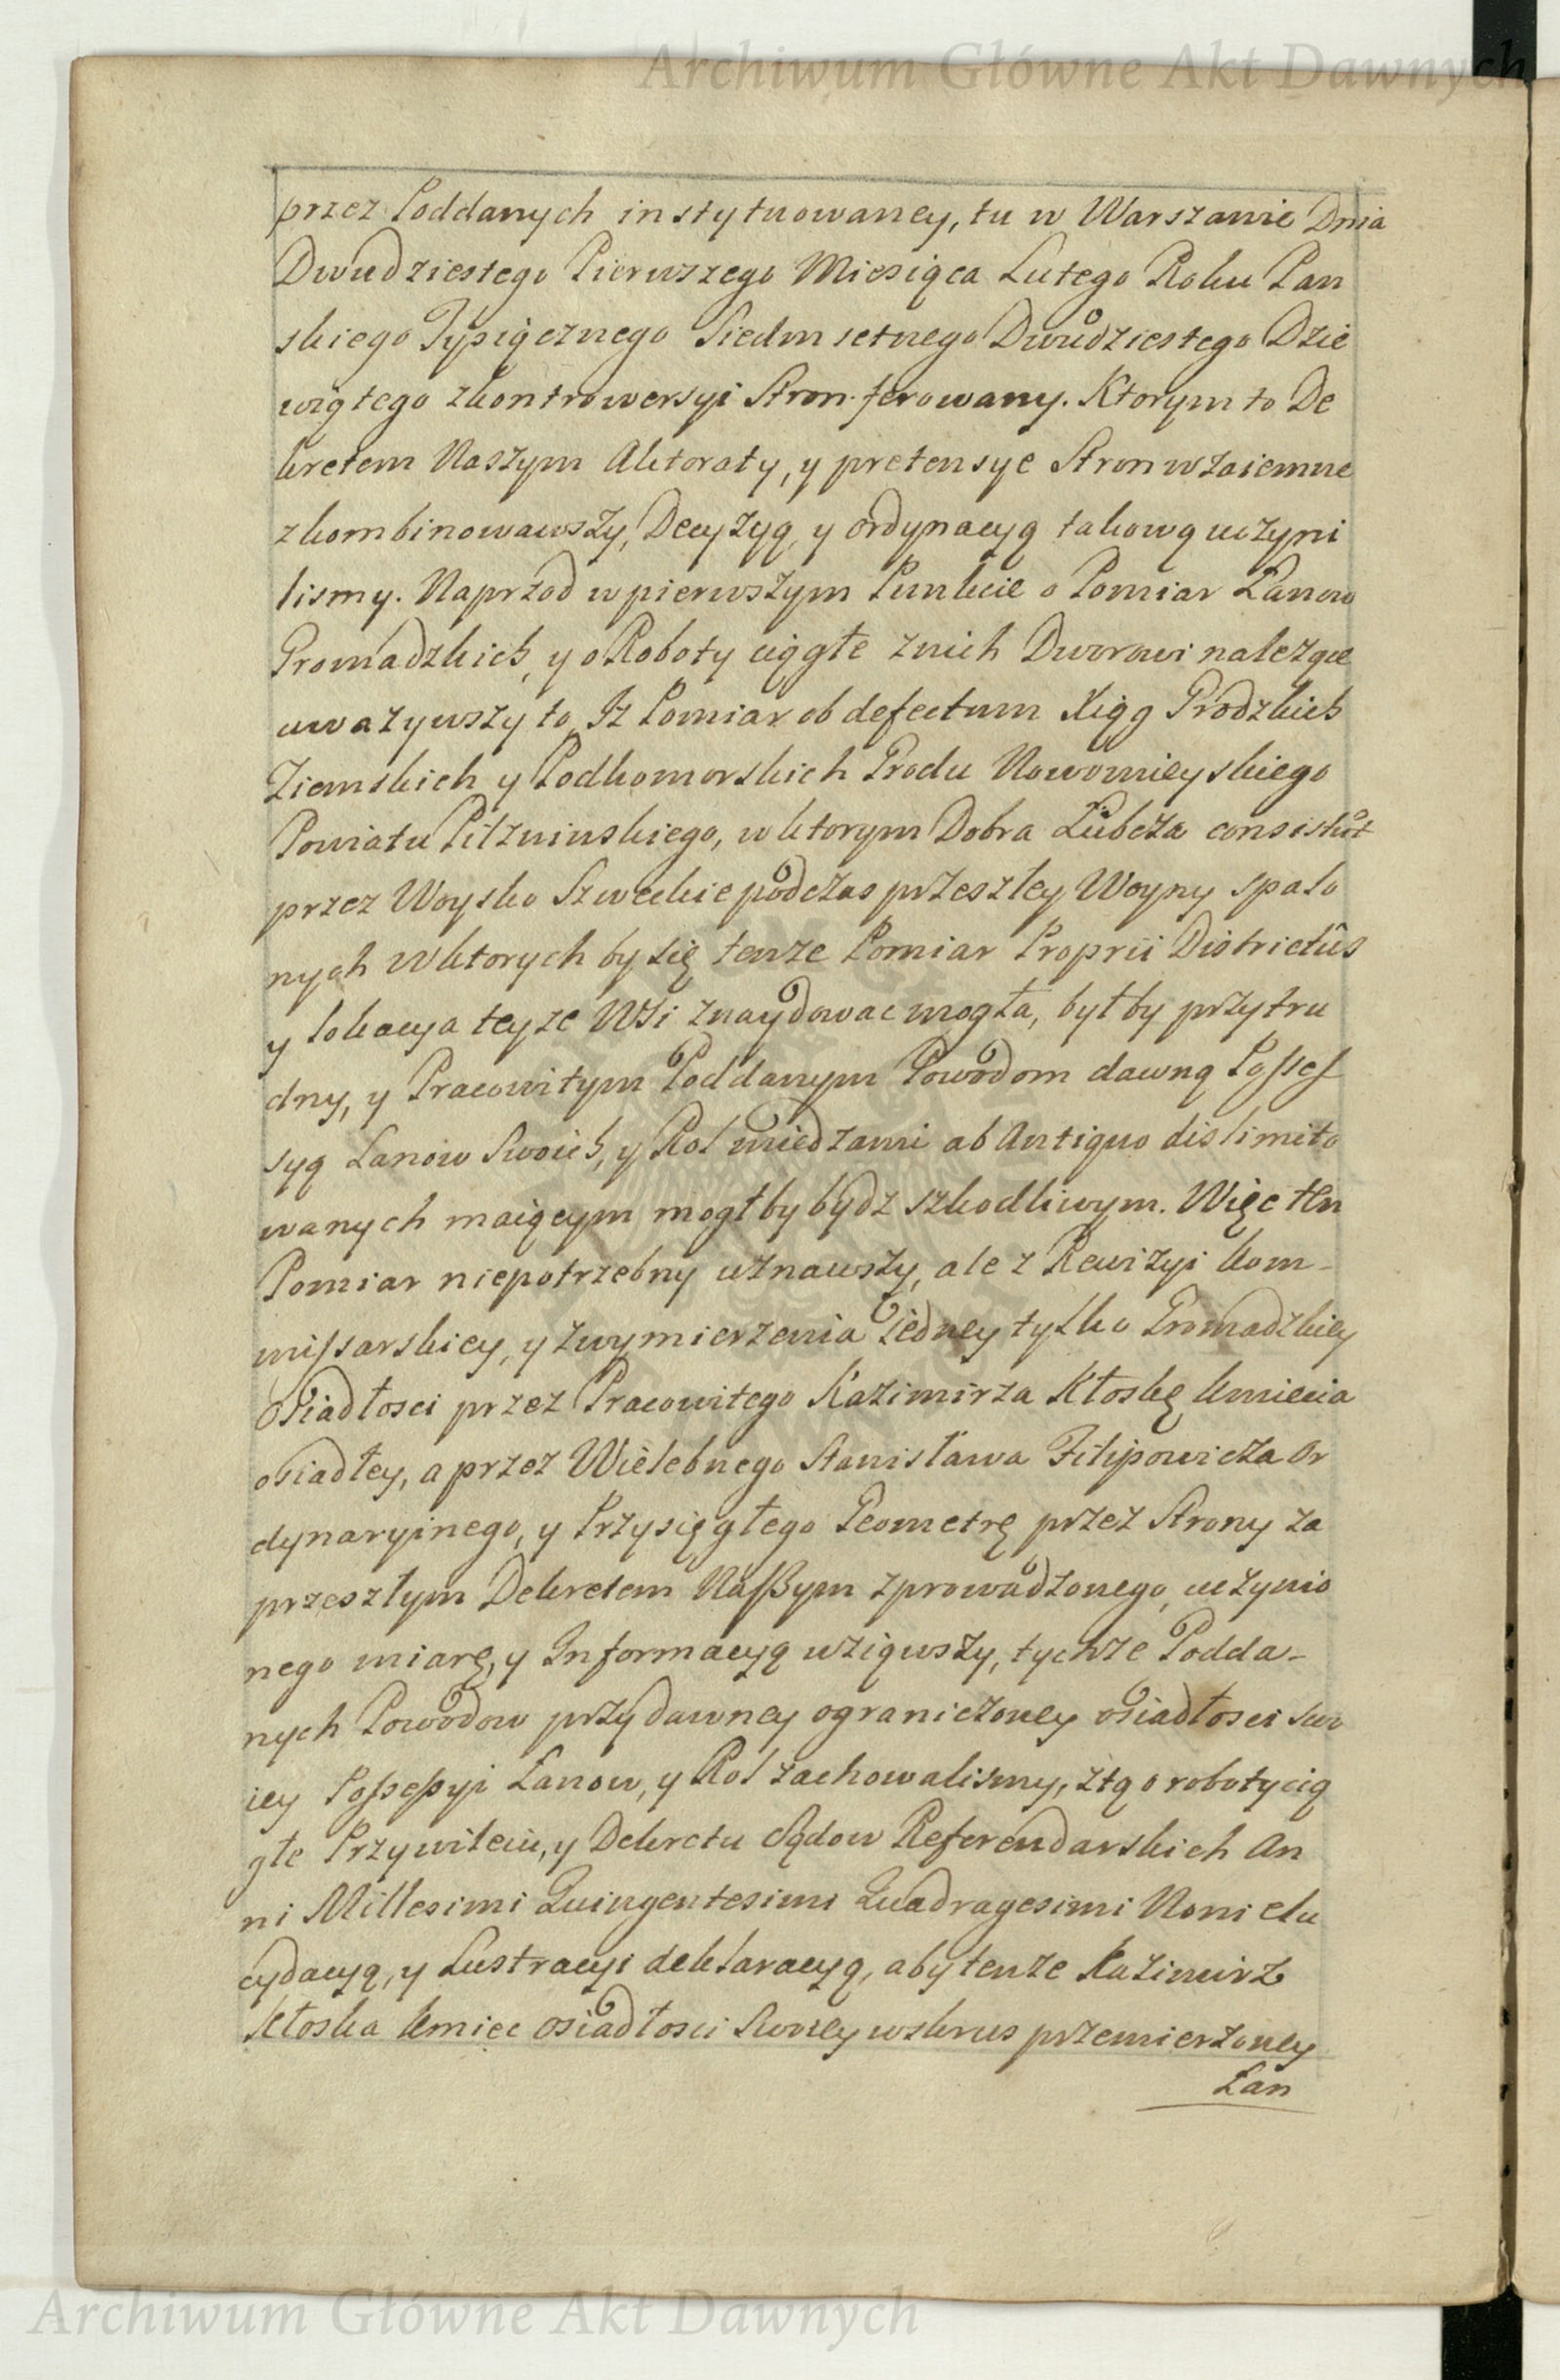 Archiwum Główne Akt Dawnych
przez Poddanych instytuowaney, tu w Warszawie Dnia
Dwudziestego Pierwszego Miesiąca Lutego Roku Pan
skiego Tysiącznego Siedmsetnego Dwudziestego Dzie
wiątego zkontrowersyi Stron ferowany. Ktorym to De
kretem Naszym Aktoraty, y pretensye Stron wzaiemne
zkombinowawszy, Decyzyą, y ordynacyą takową uczyni
lismy. Naprzod w pierwszym Punkcie o Pomiar Łanow
Gromadzkich, y o Roboty ciągłe z nich Dworowi należące
uważywszy to, Iż Pomiar ob defectum Xiąg Grodzkich
Ziemskich y Podkomorskich Grodu Nowomieyskiego
Powiatu Pilzninskiego, w ktorym Dobra Lubcza consistut
przez Woysko Szweckie podczas przeszłey Woyny spalo
nych w ktorych by się tenze Pomiar Proprii Districtûs
y lokacya teyze Wsi znaydowac mogła, byłby przytru
dny, y Pracowitym Poddanym Powodom dawną Possес
syą Łanow Swoich, y Rol miedzami ab Antiquo dislimito
wanych maiącym mogłby bydz szkodliwym. Więc ten
Pomiar niepotrzebny uznawszy, ale z Rewizyi kom-
missarskiey, y zwymierzenia iedney tylko Gromadzkiey
Osiadłosci przez Pracowitego Kazimirza Kłoskę kmiecia
osiadłey, a przez Wielebnego Stanisława Filipowicza Or
dynaryinego, y Przysięgłego Geometrę przez Strony za
przeszłym Dekretem Naszym zprowadzonego, uczynio
nego miarę, y Informacyą wziąwszy, tychze Podda-
nych Powodow przy dawney ograniczoney osiadłosci swo
iey Possessyi Łanow, y Rol zachowalismy, ztą o roboty cią
głe Przywileiu, y Dekretu Sądow Referendarskich An
ni Millesimi Quingentesimi Quadragesimi Noni elu
cydacyą, y Lustracyi deklaracyą, aby tenze Kazimirz
Kłoska kmiec osiadłosci Swoiey wskrus przemierzoney
Łan
Archiwum Główne Akt Dawnych